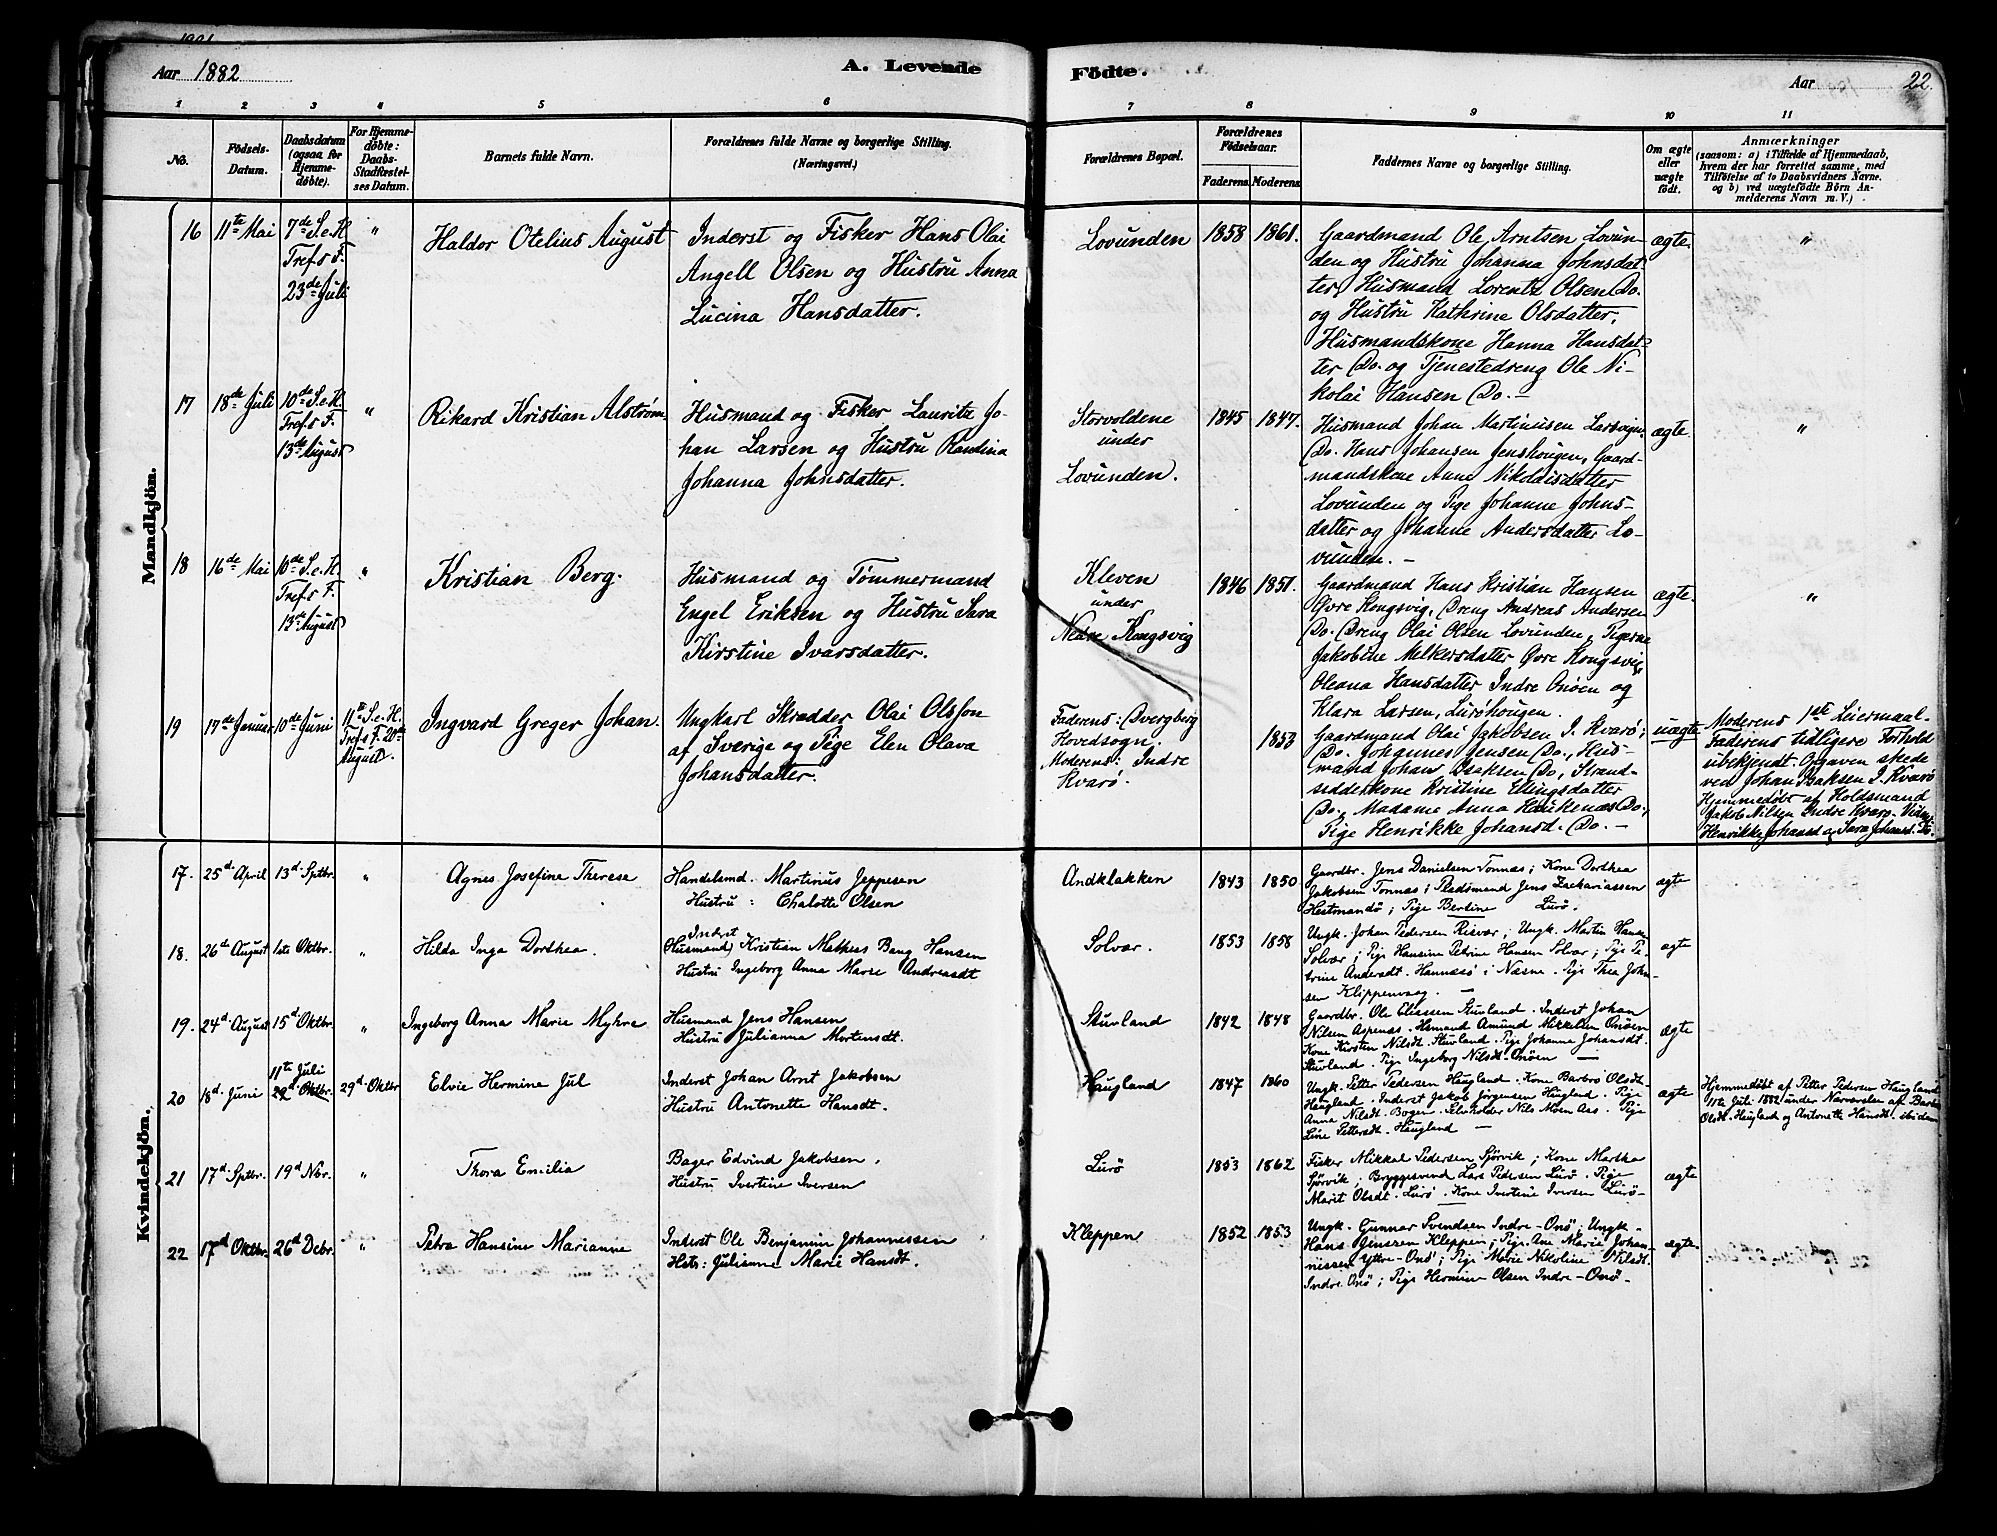 Aar 1882
A. Levende
Födte.
Aar
22.
1
2
3
4
5
6
7
8
9
10
11
No.
Födsels-
Datum.
Daabsdatum
(ogsaa for
Hjemme-
døbte).
For Hjemme-
døbte:
Daabs-
Stadfæstel-
ses Datum.
Barnets fulde Navn.
Forældrenes fulde Navne og borgerlige Stilling.
(Næringsvei.)
Forældrenes Bopæl.
Forældrenes
Fødselsaar.
Faderens.
Moderens.
Faddernes Navne og borgerlige Stilling.
Om ægte
eller
uægte
født.
Anmærkninger
(saasom: a) i Tilfælde af Hjemmedaab,
hvem der har forrettet samme, med
Tilføielse af to Daabsvidners Navne.
og b) ved uegtefødte Börn An-
melderens Navn m. V.)
Mandkjön.
16
11te Mai
7de S. e. H.
Tref. s F.
23de Juli
"
Haldor Otelius August
Inderst og Fisker Hans Olai
Angell Olsen og Hustru Anna
Lucina Hansdatter.
Lovunden
1858
1861.
Gaardmand Ole Arntsen Lovun-
den og Hustru Johanna Johnsdat-
ter, Husmand Lorentz Olsen Do.
og Hustru Kathrine Olsdatter,
Husmandskone Hanna Hansdat-
ter Do. og Tjenestedreng Ole Ni-
kolai Hansen Do. –
ægte.
"
17
18de Juli
10de S. e. H.
Tref. s F.
13de August
"
Rikard Kristian Alstrøm.
Husmand og Fisker Lauritz Jo-
han Larsen og Hustru Randina
Johanna Johnsdatter.
Storvoldene
under
Lovunden.
1845
1847.
Husmand Johan Martinusen Larsvign,
Do. Hans Johansen Jenshougen, Gaard-
mandskone Anne Nikolaisdatter
Lovunden og Pige Johanne Johns-
datter og Johanne Andersdatter Lo-
vunden. –
ægte.
"
18
16de Mai
10de S. e. H.
Tref. s F.
13de August
"
Kristian Berg.
Husmand og Tømmermand
Engel Eriksen og Hustru Sara
Kirstine Ivarsdatter.
Kleven
under
Nedre Kongsvig
1846
1851.
Gaardmand Hans Kristian Hansen
Øvre Kongsvig, Dreng Andreas Andersen
Do. Dreng Olai Olsen Lovunden, Pigerne
Jakobine Melkersdatter Øvre Kongsvig,
Oleana Hansdatter Indre Onøen og
Klara Larsen, Lurøhougen.
ægte.
"
19
17de Januar
10de Juni
11te S. e. H.
Tref. s F. 20de
August.
Ingvard Greger Johan.
Ungkarl Skrædder Olai Olsson
af Sverige og Pige Elen Olava
Johansdatter.
Faderens: Dvergberg
Hovedsogn.
Moderens: Indre
Kvarø.
1853
Gaardmand Olai Jakobsen I. Kvarø,
Do. Johannes Jensen Do., Hus-
mand Johan Isaksen Do, Strand-
sidderkone Kristine Ellingsdatter
Do., Madame Anna Do,
Pige Henrikke Johansd. Do. –
uægte
Moderens 1ste Leiermaal.
Faderens tidligere Forhold
ubekjendt. Opgaven skede
ved Johan Isaksen I. Kvarø
Hjemmedøbt af Holdsmand
Jakob Nilsen Indre Kvarø. Vidne:
Henrikke Johansd og Sara Johansd. Do.
Kvindekjön.
17.
25d. April
13d. Sptbr.
"
Agnes Josefine Therese
Handelsmd. Martinus Jeppesen
Hustru: Chalotte Olsen
Andklakken
1843
1850
Gaardbr. Jens Danielsen Tonnæs; Kone Dorthea
Jakobsen Tonnæs; Pladsmand Jens Zachariassen
Hestmandö; Pige Bertine Lurö.
ægte
18.
26d August
1ste Oktbr.
"
Hilda Inga Dorthea.
Inderst
(Husmand) Kristian Mathias Bang Hansen
Hustru Ingeborg Anna Marie Andreasdt
Solvær.
1853
1858
Ungk. Johan Pedersen Risvær; Ungk. Martin Hansen
Solvær; Pige Hansine Petrine Hansen Solvær; Pige Pe-
trine Andersdt. Hannæsö i Næsne. Pige Thea John-
sen Klippenvaag. –
ægte
19.
24d. August
15d. Oktbr.
"
Ingeborg Anna Marie Myhre
Husmand Jens Hansen
Hustru Julianna Mortensdt.
Stuvland
1842
1848
Gaardbr. Ole Eliassen Stuvland. Inderst Johan
Nilsen Aspenæs. Husmand Amund Mikkelsen Onöen
Kone Kirsten Nilsdt. Stuvland. Pige Johanna Johansdt.
Stuvland. Pige Ingeborg Nilsdt. Onöen –
ægte
20
18d. Juni
11te Juli
29d. Oktbr.
29d. Oktbr
Elvie Hermine Jul
Inderst Johan Arnt Jakobsen
Hustru Antonette Hansdt.
Haugland
1847
1860
Ungk. Petter Pedersen Haugland. Kone Barbro Olsdt.
Haugland. Inderst Jakob Jörgensen Haugland. Pige
Anna Nilsdt. Bogen. Selveholder Nils Moen Aas. Pige
Line Pettersdt. Haugland –
ægte
Hjemmedöbt af Petter Pedersen Haugland
11te Juli 1882 under Nærværelse af Barbro
Olsdt. Haugland og Antonette Hansdt. ibidem
21
17d. Sptbr.
19d. Nbr.
"
Thora Emilia
Bager Edvind Jakobsen.
Hustru Ivertine Iversen
Lurö
1853
1862
Fisker Mikkal Pedersen Sjörvik; Kone Martha
Sjörvik; Bryggesvend Lars Pedersen Lurö. Pige
Marit Olsdt. Lurö. Kone Ivertine Iversen Lurö–
ægte
22
17d Oktbr.
26d Decbr.
"
Petra Hansine Marianne
Inderst Ole Benjamin Johannessen
Hsts: Julianne Marie Hansdt.
Kleppen
1852
1853
Ungk. Gunnar Svendsen Indre-Onö; Ungk.
Hans Jenssen Kleppen; Pige. Ane Marie Johan-
nissen Yttre-Onö; Pige Marie Nikoline Nilsdt.
Indre Onö; Pige Hermine Olsen Indre-Onö–
ægte